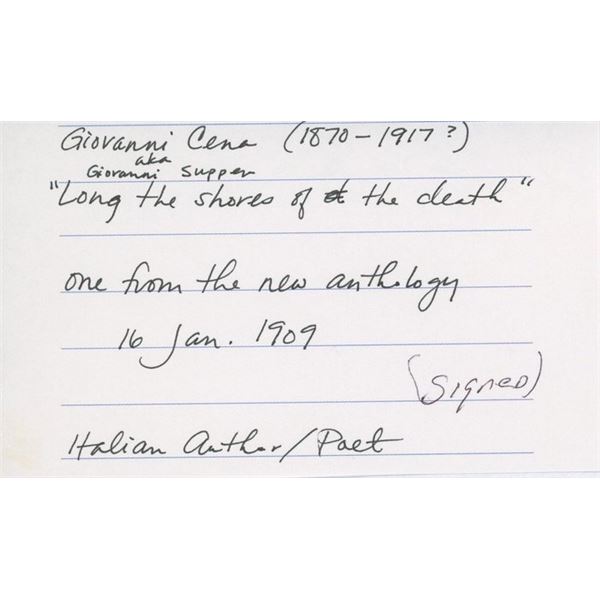 Giovanni Cena (1870-1917?)
aka
Giovanni Supper
"Long the shores of the death"
one from the new anthology
16 Jan. 1909
(Signed)
Italian Author/Poet